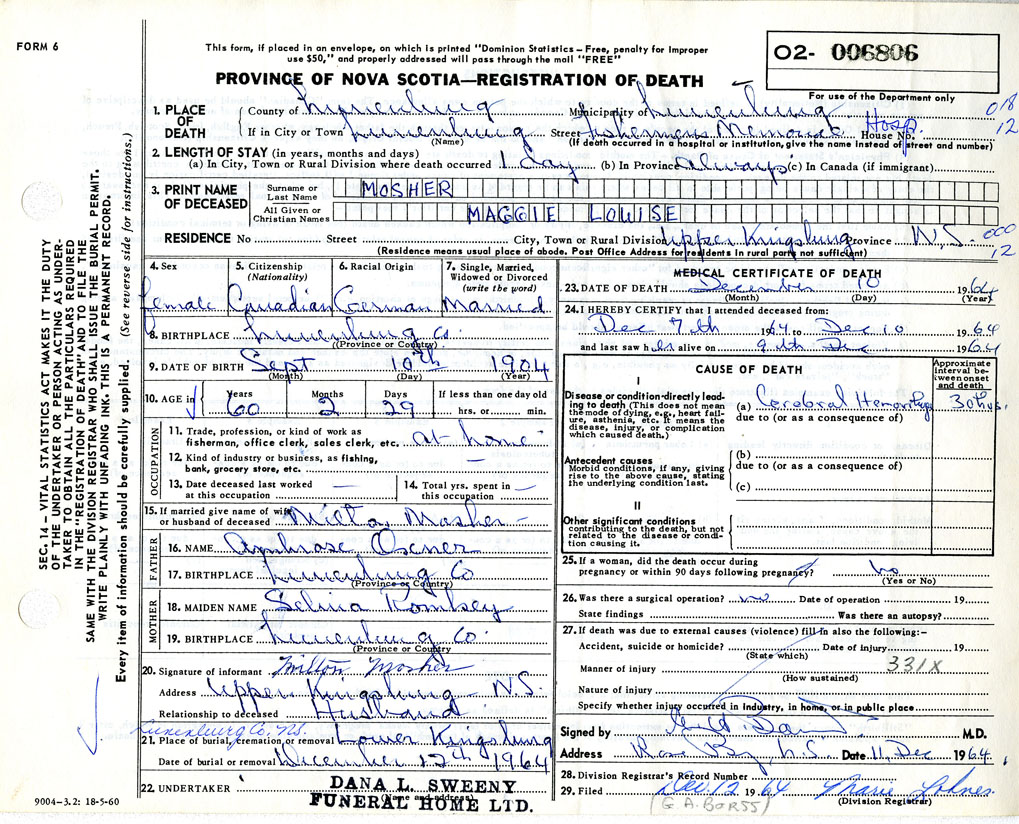 FORM 6
This form, if placed in an envelope, on which is printed "Dominion Statistics – Free, penalty for improper
use $50," and properly addressed will pass through the mail "FREE"
O2- 006806
PROVINCE OF NOVA SCOTIA—REGISTRATION OF DEATH
For use of the Department only
018
12
1. PLACE OF DEATH
County of Lunenburg Municipality of Lunenburg
If in City or Town Lunenburg Street Fishermens Memorial House No. Hosp.
(Name) (If death occurred in a hospital or institution, give the name instead of street and number)
2. LENGTH OF STAY (in years, months and days)
(a) In City, Town or Rural Division where death occurred 1 day (b) In Province always (c) In Canada (if immigrant)
3. PRINT NAME OF DECEASED
Surname or Last Name MOSHER
All Given or Christian Names MAGGIE LOUISE
RESIDENCE No Street City, Town or Rural Division Upper Kingsburg Province N.S.
000
12
(Residence means usual place of abode. Post Office Address for residents in rural parts not sufficient)
4. Sex
female
5. Citizenship (Nationality)
Canadian
6. Racial Origin
German
7. Single, Married, Widowed or Divorced (write the word)
Married
8. BIRTHPLACE Lunenburg Co.
(Province or Country)
9. DATE OF BIRTH Sept 10th 1904
(Month) (Day) (Year)
10. AGE in Years 60 Months 2 Days 29 If less than one day old
hrs. or min.
OCCUPATION
11. Trade, profession, or kind of work as
fisherman, office clerk, sales clerk, etc. at home
12. Kind of industry or business, as fishing,
bank, grocery store, etc. —
13. Date deceased last worked at this occupation —
14. Total yrs. spent in this occupation —
15. If married give name of wife
or husband of deceased Milton Mosher
FATHER
16. NAME Ambrose Oxner
17. BIRTHPLACE Lunenburg Co
(Province or Country)
MOTHER
18. MAIDEN NAME Selina
19. BIRTHPLACE Lunenburg Co.
(Province or Country)
20. Signature of informant Milton Mosher
Address Upper Kingsburg – N.S.
Relationship to deceased Husband
Lunenburg Co, N.S.
21. Place of burial, cremation or removal Lower Kingsburg
Date of burial or removal December 12th 1964
22. UNDERTAKER DANA L. SWEENY
(Name and address)
FUNERAL HOME LTD.
9004–3.2: 18-5-60
MEDICAL CERTIFICATE OF DEATH
23. DATE OF DEATH December 10 1964
(Month) (Day) (Year)
24. I HEREBY CERTIFY that I attended deceased from:
Dec 7th 1964 to Dec 10 1964
and last saw her alive on 9th Dec 1964
CAUSE OF DEATH
Approximate interval between onset and death
I
Disease or condition directly leading to death (This does not mean the mode of dying, e.g., heart failure, asthenia, etc. It means the disease, injury, or complication which caused death.)
(a) Cerebral Hemorrhage 30 hrs.
due to (or as a consequence of)
Antecedent causes
Morbid conditions, if any, giving rise to the above cause, stating the underlying condition last.
(b)
due to (or as a consequence of)
(c)
II
Other significant conditions
contributing to the death, but not related to the disease or condition causing it.
25. If a woman, did the death occur during
pregnancy or within 90 days following pregnancy? no
(Yes or No)
26. Was there a surgical operation? no Date of operation 19
State findings Was there an autopsy?
27. If death was due to external causes (violence) fill in also the following:–
Accident, suicide or homicide? Date of injury 19
(State which)
Manner of injury 331X
(How sustained)
Nature of injury
Specify whether injury occurred in industry, in home, or in public place
Signed by M.D.
Address Rose Bay, N.S. Date 11 Dec 1964
28. Division Registrar's Record Number
29. Filed Dec. 12 1964 Marie Lohnes
(G A BORSS) (Division Registrar)
SEC. 14 – VITAL STATISTICS ACT MAKES IT THE DUTY
OF THE UNDERTAKER OR PERSON ACTING AS UNDER-
TAKER TO OBTAIN ALL THE PARTICULARS REQUIRED
IN THE "REGISTRATION OF DEATH" AND TO FILE THE
SAME WITH THE DIVISION REGISTRAR WHO SHALL ISSUE THE BURIAL PERMIT.
WRITE PLAINLY WITH UNFADING INK. THIS IS A PERMANENT RECORD.
Every item of information should be carefully supplied. (See reverse side for instructions.)